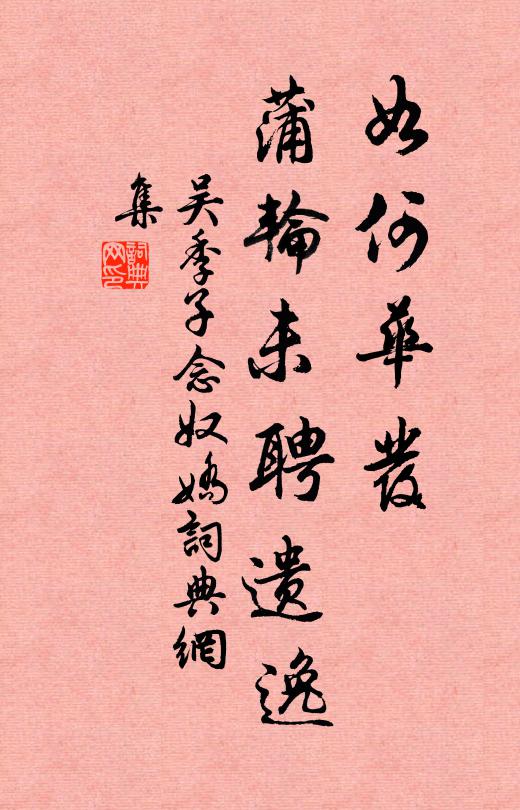 如何華髮
蒲輪未聘遺逸
吴季子念奴嬌詞典網
集
詞典網印